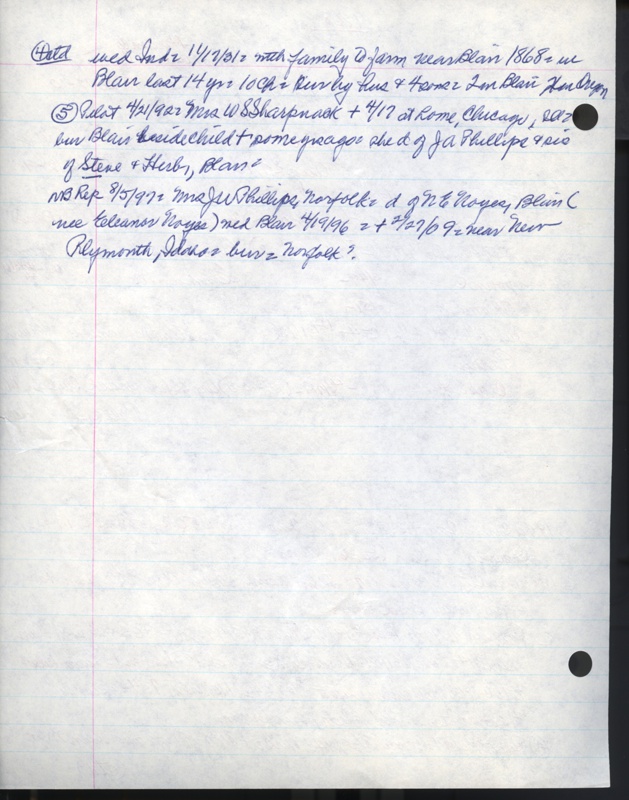 wed Ind = 11/17/51 = with family to farm near Blair 1868 = in
Blair last 14 yrs = 10 ch = surv by hus & 4 sons = 2 in Blair
⑤ Pilot 4/21/92 = Mrs W S Sharpnack + 4/17 at home, Chicago,
bur Blair beside child + some yrs ago = she d of J A Phillips & sis
of Steve & Herb, Blair =
NB Rep 8/5/97 = Mrs J W Phillips, Norfolk = d of N E Noyes, Blair (
nee Eleanor Noyes) wed Blair 4/19/96 = + 2/27/09 = near New
Plymouth, Idaho = bur = Norfolk?.